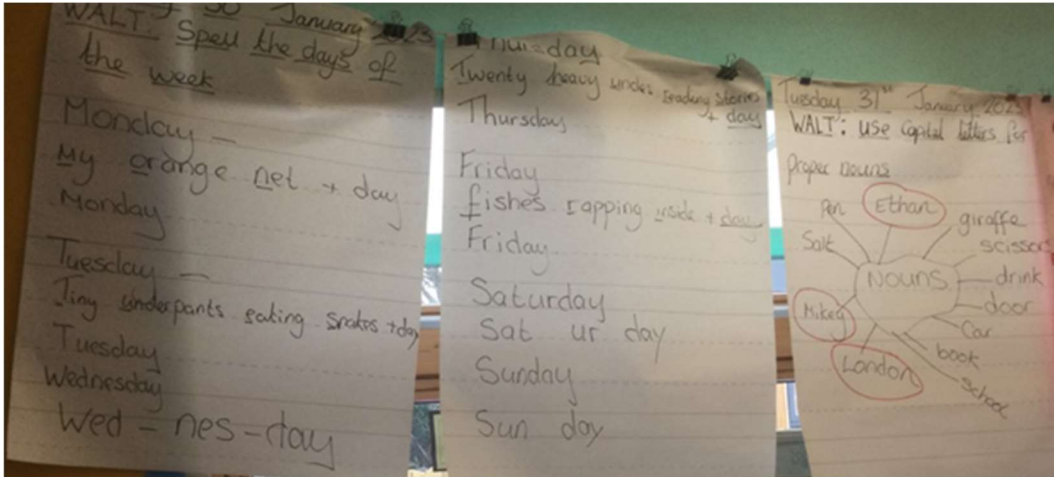 30 January 2023
WALT: Spell the days of
the week
Monday —
My orange net + day
Monday
Tuesday —
Tiny underpants eating snakes + day
Tuesday
Wednesday
Wed - nes - day
Thursday
Twenty heavy undes reading stories
+ day
Thursday
Friday
fishes rapping inside + day
Friday
Saturday
Sat ur day
Sunday
Sun day
Tuesday 31st January 2023
WALT: use capital letters for
proper nouns
Pen
Ethan
giraffe
Salt
scissors
Nouns
drink
door
Mikey
Car
book
London
School